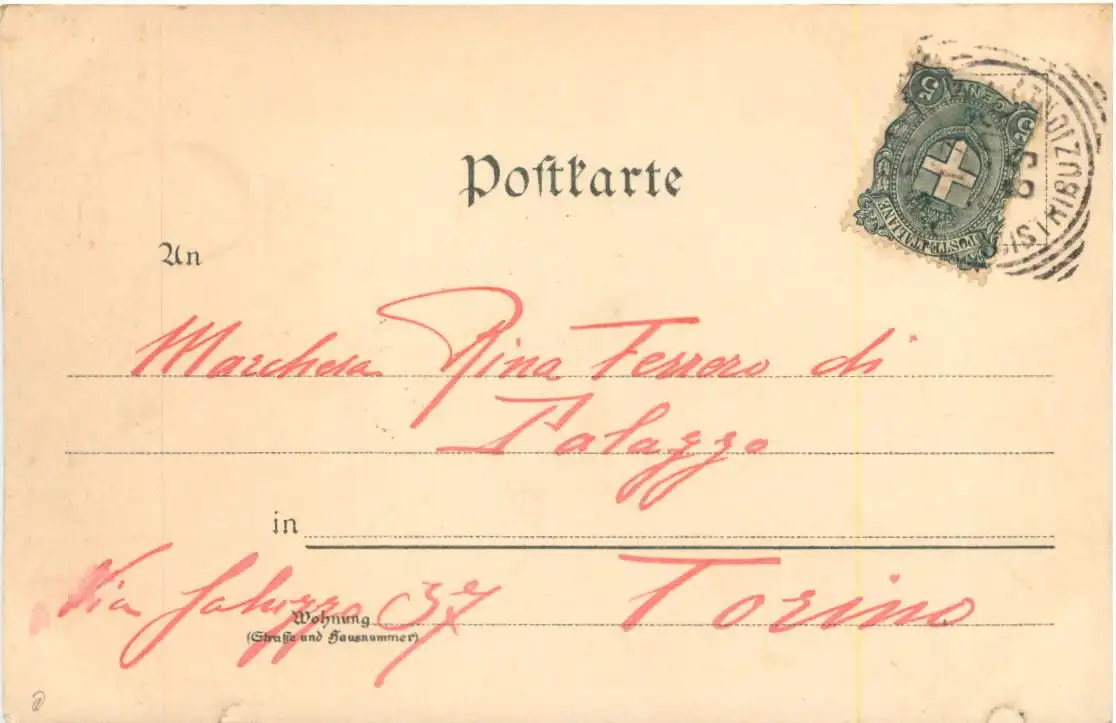 Postkarte
CENT
5 5
POSTE ITALIANE
DISTRIBUZIONE
An
Marchesa Rina Ferrero di
Palazzo
in
Via Saluzzo 37 Torino
Wohnung
(Straße und Hausnummer)